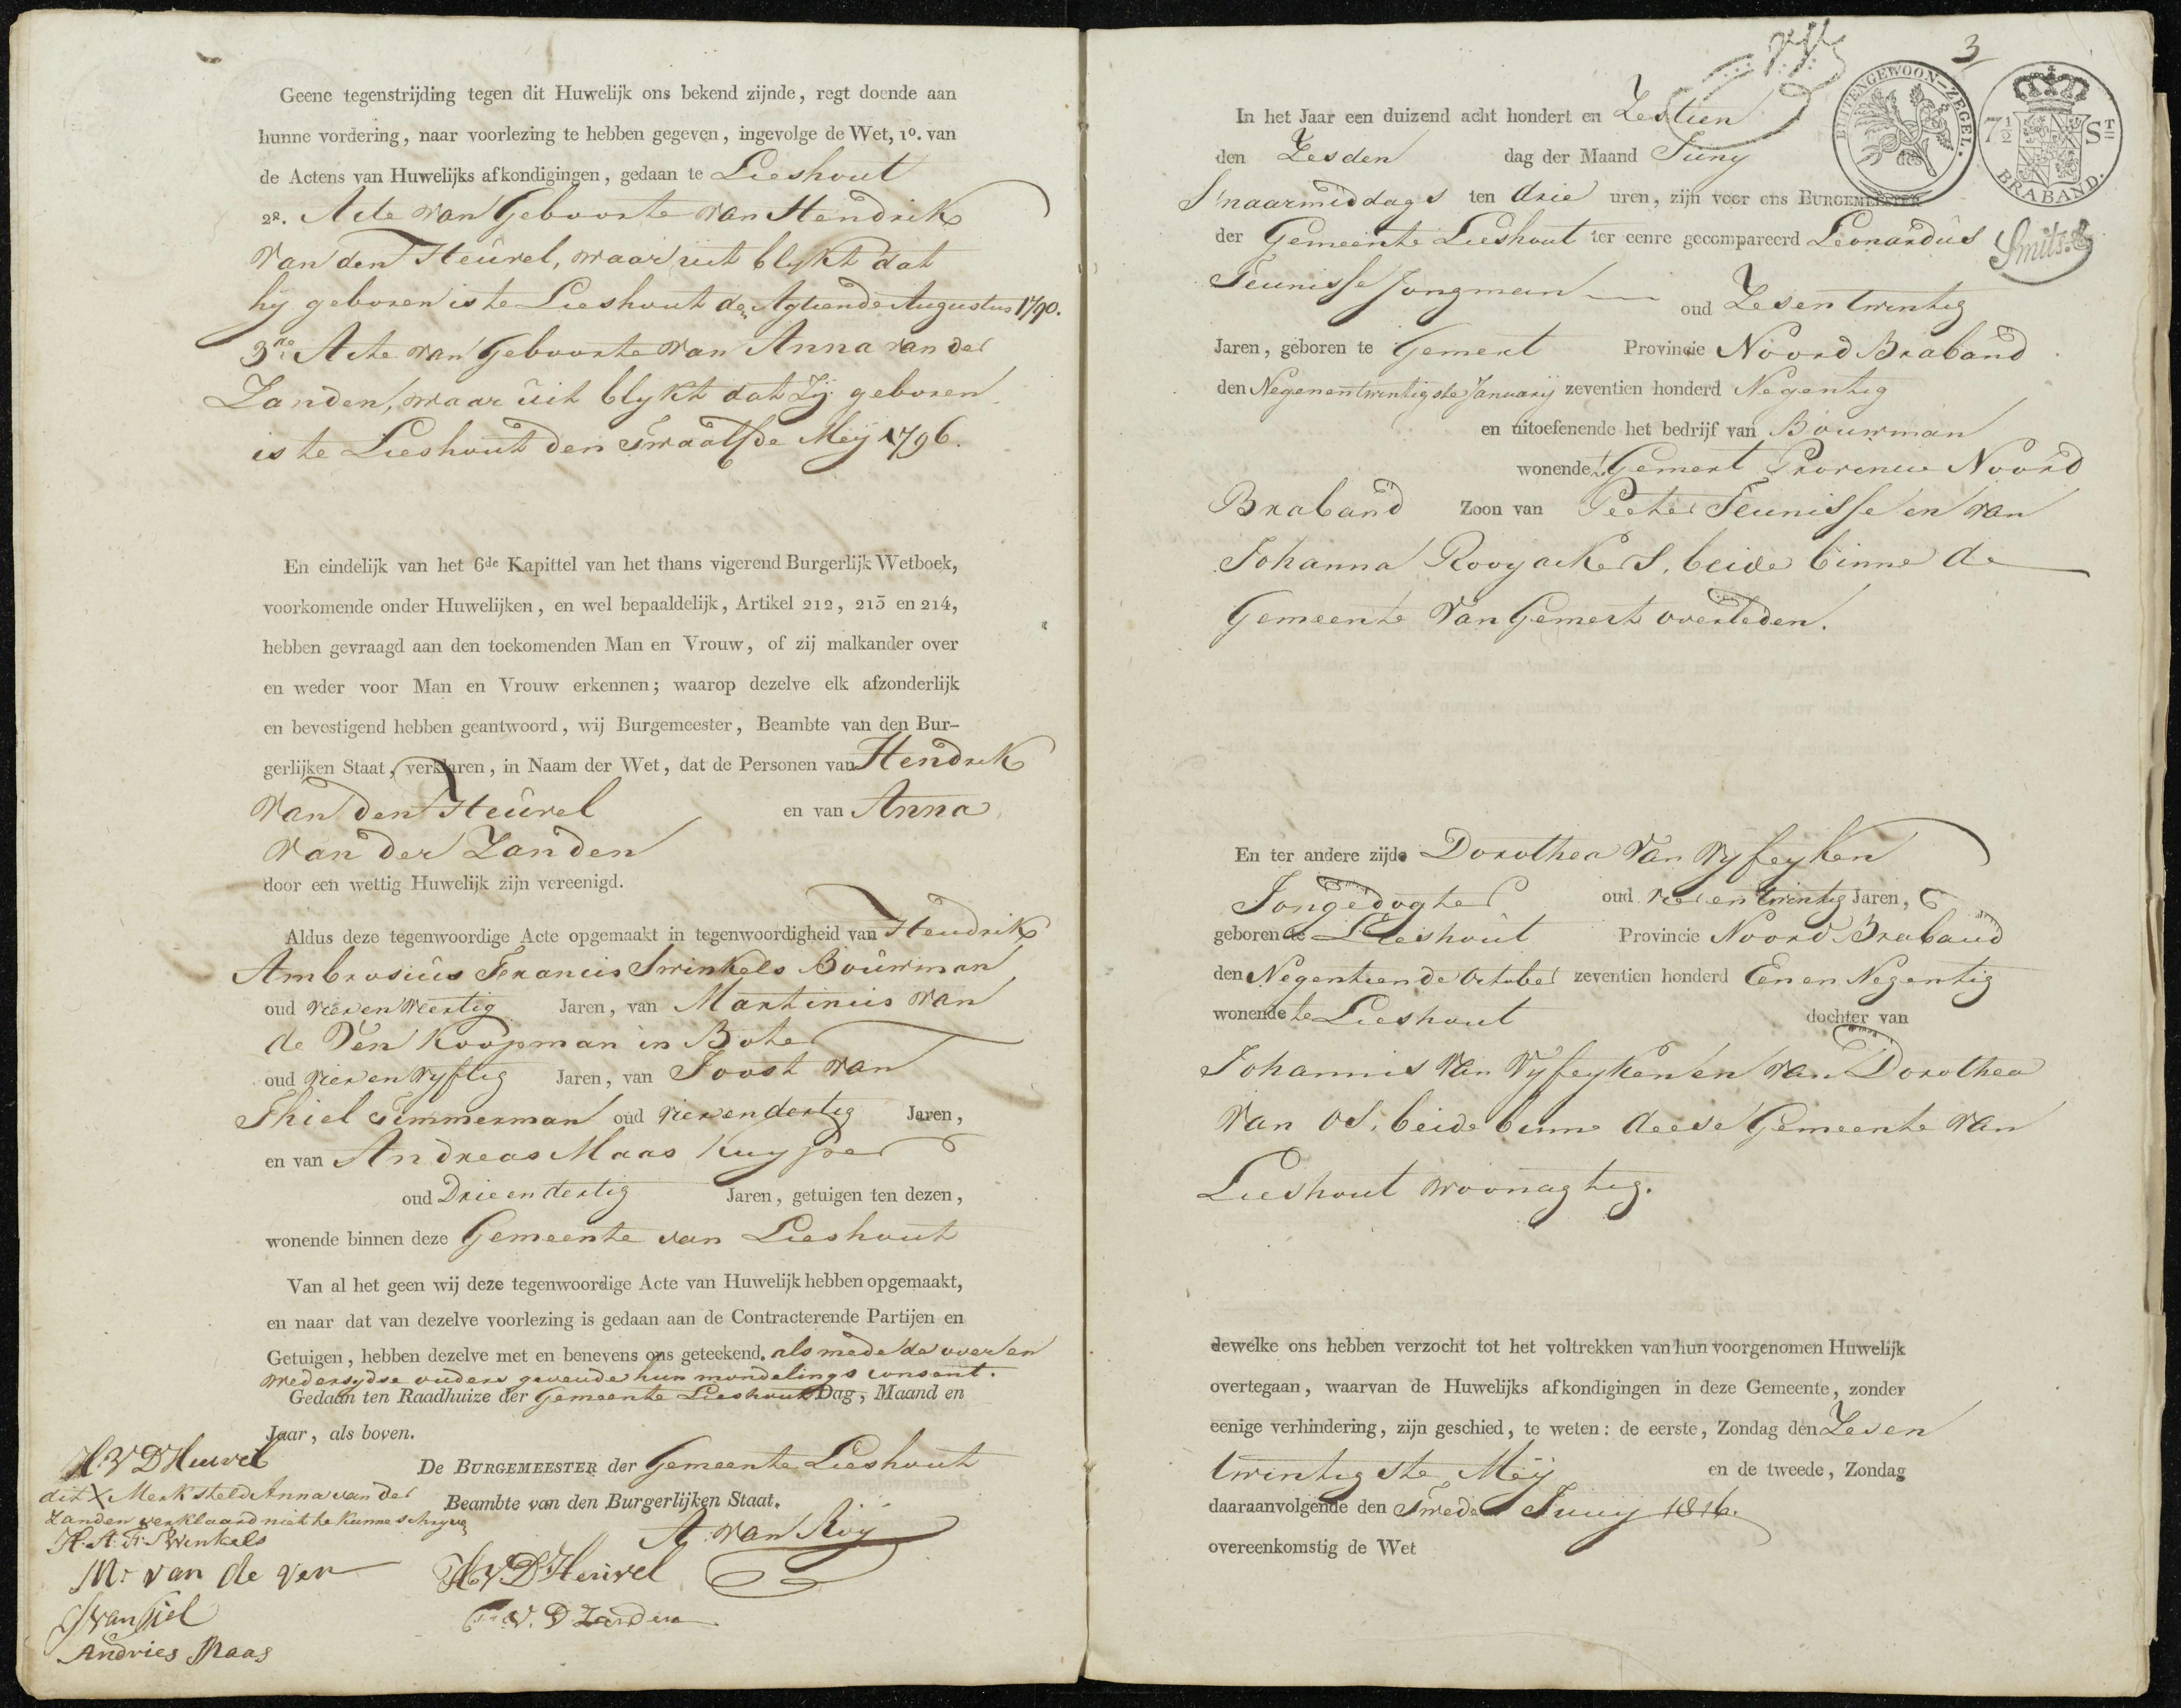 Geene tegenstrijding tegen dit Huwelijk ons bekend zijnde, regt doende aan
hunne vordering, naar voorlezing te hebben gegeven, ingevolge de Wet, 1º. van
de Actens van Huwelijks afkondigingen, gedaan te Lieshout
2º. Acte van Geboorte van Hendrik
van den Heuvel, waar uit blykt dat
hij geboren is te Lieshout den Agtiende Augustus 1790.
3de Acte van Geboorte van Anna van der
Zanden, waar uit blykt dat Zij geboren
is te Lieshout den Twaalfde Meij 1796.
En eindelijk van het 6de Kapittel van het thans vigerend Burgerlijk Wetboek,
voorkomende onder Huwelijken, en wel bepaaldelijk, Artikel 212, 213 en 214,
hebben gevraagd aan den toekomenden Man en Vrouw, of zij malkander over
en weder voor Man en Vrouw erkennen; waarop dezelve elk afzonderlijk
en bevestigend hebben geantwoord, wij Burgemeester, Beambte van den Bur-
gerlijken Staat, verklaren, in Naam der Wet, dat de Personen van Hendrik
van den Heuvel en van Anna
van der Zanden
door een wettig Huwelijk zijn vereenigd.
Aldus deze tegenwoordige Acte opgemaakt in tegenwoordigheid van Hendrik
Ambrosius Francis Swinkels Bouwman
oud vier en veertig Jaren, van Martinus van
de Ven Koopman in Boter
oud vier en vyftig Jaren, van Joost van
Thiel Timmerman oud vier en dertig Jaren,
en van Andreas Maas Kuyper
oud Drie en dertig Jaren, getuigen ten dezen,
wonende binnen deze Gemeente van Lieshout
Van al het geen wij deze tegenwoordige Acte van Huwelijk hebben opgemaakt,
en naar dat van dezelve voorlezing is gedaan aan de Contracterende Partijen en
Getuigen, hebben dezelve met en benevens ons geteekend. als mede de over en
wedersydse ouders gevende hun mondelings consent.
Gedaan ten Raadhuize der Gemeente Lieshout Dag, Maand en
Jaar, als boven.
H V D Heuvel
De BURGEMEESTER der Gemeente Lieshout
dit X Merk steld Anna van der
Beambte van den Burgerlijken Staat.
Zanden verklaard niet te kunne schryve
H. A. F. Swinkels
A van Roij
M. van de ven
H V D Heuvel
J van tiel
V. D Zanden
Andries Maas
3
BUITENGEWOON-ZEGEL.
7½ ST
BRABAND.
Smits.
In het Jaar een duizend acht hondert en Zestien
den Zesden dag der Maand Juny des
S'naarmiddags ten drie uren, zijn voor ons BURGEMEESTER
der Gemeente Lieshout ter eenre gecompareerd Leonardus
Teunisse Jongman oud Zes en twintig
Jaren, geboren te Gemert Provincie Noord Braband
den Negenentwintigste January zeventien honderd Negentig
en uitoefenende het bedrijf van Bouwman
wonende te Gemert Provincie Noord
Braband Zoon van Peeter Teunisse en van
Johanna Rooyackers, beide binne de
Gemeente van Gemert overleden.
En ter andere zijde Dorothea van Vyfeyken
Jongedogter oud vier en twintig Jaren,
geboren te Lieshout Provincie Noord Braband
den Negentiende October zeventien honderd Een en Negentig
wonende te Lieshout dochter van
Johannis van Vyfeyken en van Dorothea
van Os, beide binne deese Gemeente van
Lieshout woonagtig.
dewelke ons hebben verzocht tot het voltrekken van hun voorgenomen Huwelijk
overtegaan, waarvan de Huwelijks afkondigingen in deze Gemeente, zonder
eenige verhindering, zijn geschied, te weten: de eerste, Zondag den Zes en
twintigste Meij en de tweede, Zondag
daaraanvolgende den Twede Juny 1816.
overeenkomstig de Wet